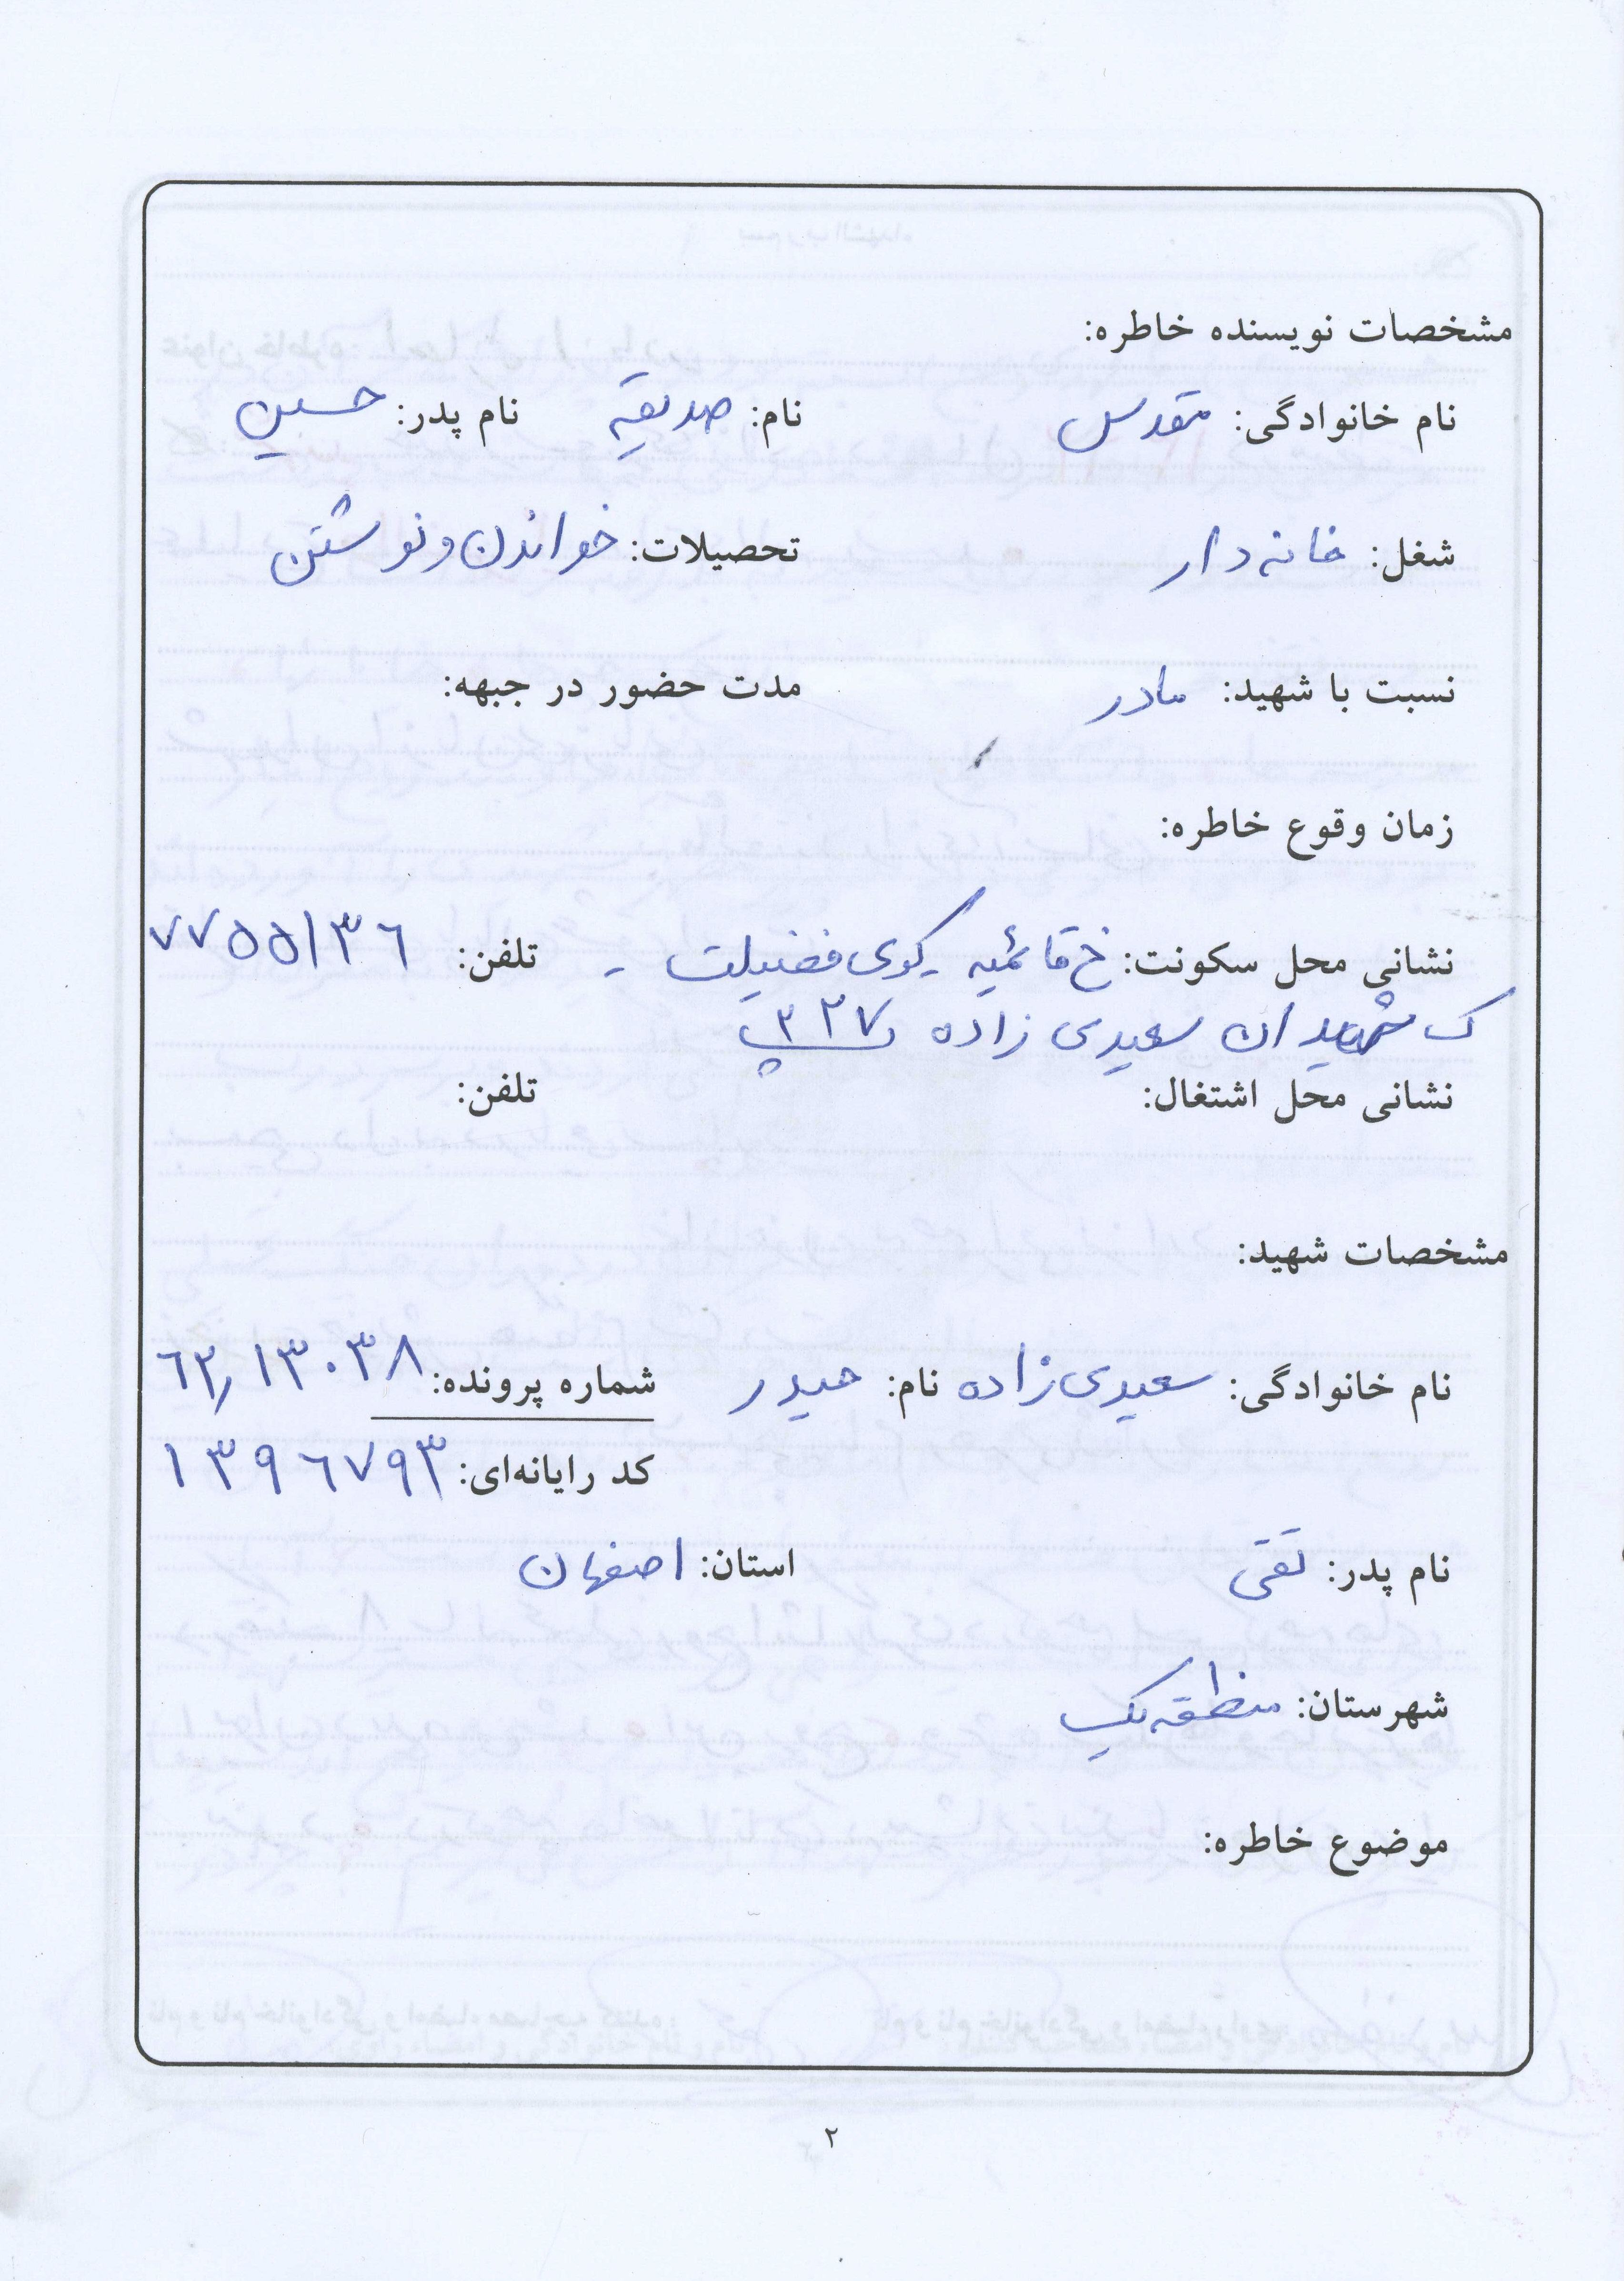 مشخصات نویسنده خاطره:
نام خانوادگی: مقدس نام: صدیقه نام پدر: حسین
شغل: خانه دار تحصیلات: خواندن و نوشتن
نسبت با شهید: مادر مدت حضور در جبهه:
زمان وقوع خاطره:
نشانی محل سکونت: خ قائمیه کوی فضیلت - تلفن: ۷۷۵۵۱۳۶
ک شهیدان سعیدی زاده پ ۳۲۷
نشانی محل اشتغال: تلفن:
مشخصات شهید:
نام خانوادگی: سعیدی زاده نام: حیدر شماره پرونده: ۶۲٫۱۳۰۳۸
کد رایانه‌ای: ۱۳۹۶۷۹۳
نام پدر: تقی استان: اصفهان
شهرستان: منطقه یک
موضوع خاطره:
۲